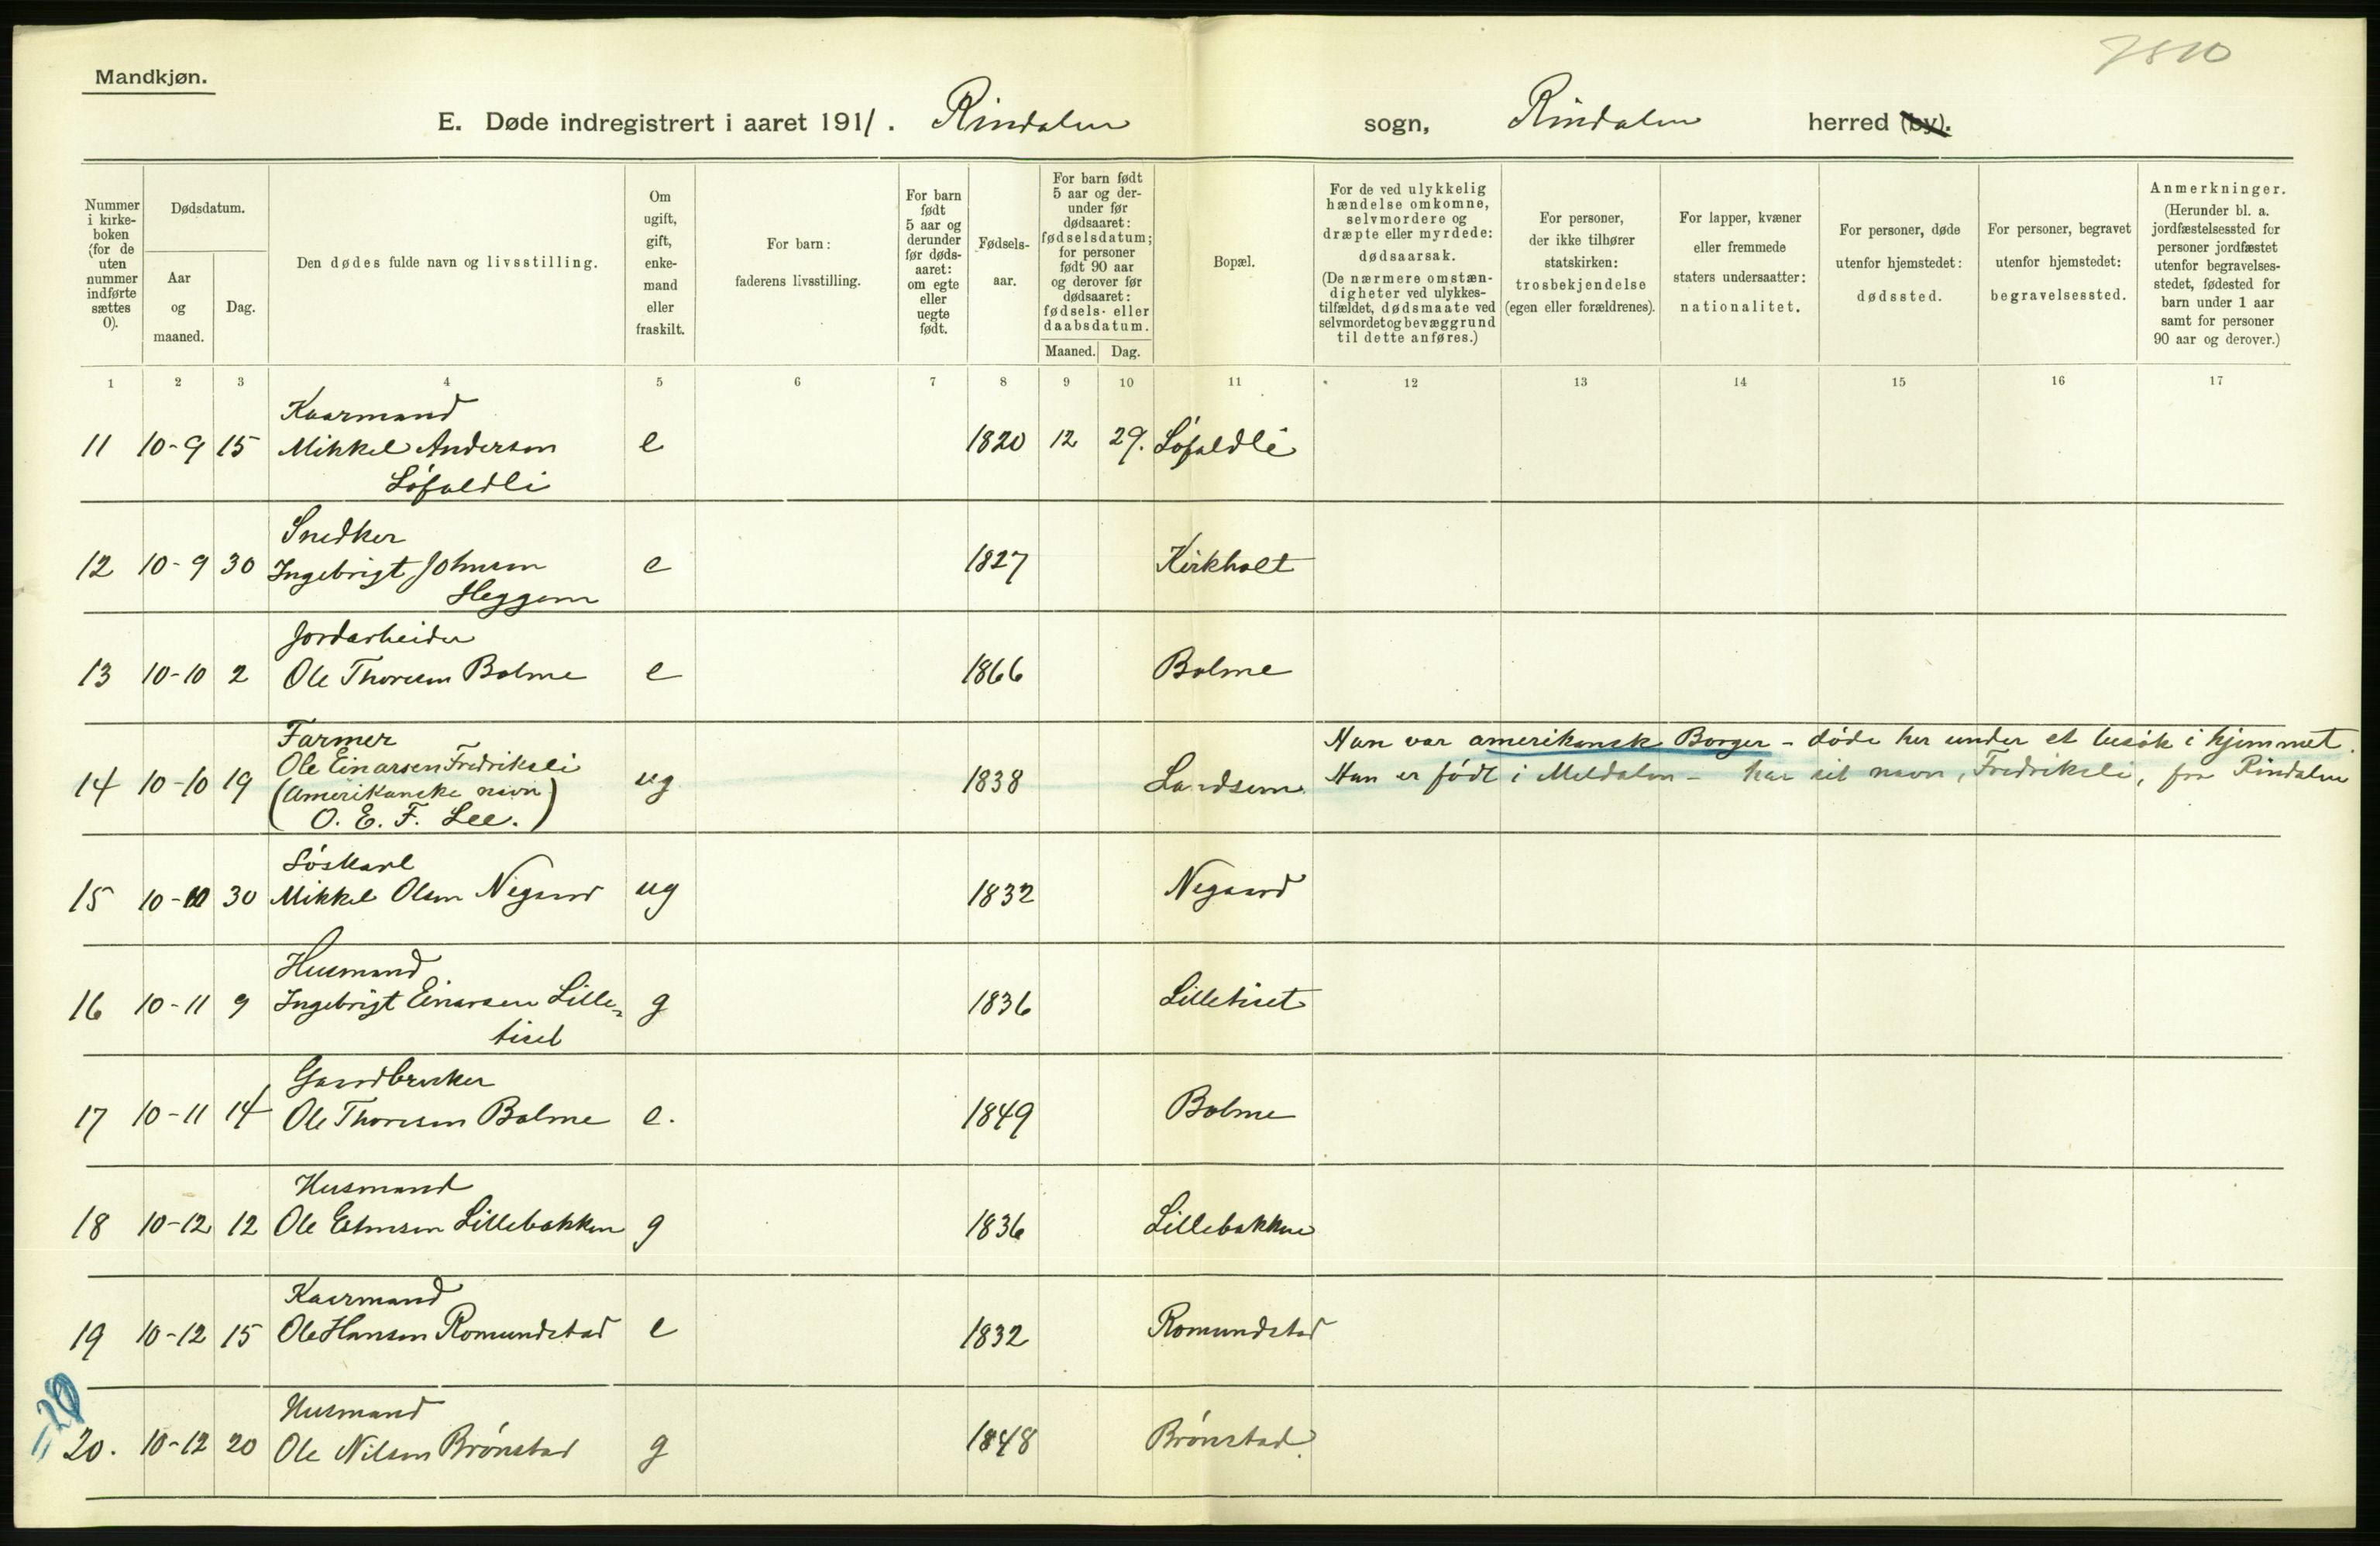 7810
Mandkjøn.
E. Døde indregistrert i aaret 1911. Rindalen sogn, Rindalen herred (by).
Nummer i kirke-boken (for de uten nummer indførte sættes 0).
Dødsdatum.
Aar og maaned.
Dag.
Den dødes fulde navn og livsstilling.
Om ugift, gift, enke-mand eller fraskilt.
For barn: faderens livsstilling.
For barn født 5 aar og derunder før døds-aaret: om egte eller uegte født.
Fødsels-aar.
For barn født 5 aar og der-under før dødsaaret: fødselsdatum; for personer født 90 aar og derover før dødsaaret: fødsels- eller daabsdatum.
Maaned. Dag.
Bopæl.
For de ved ulykkelig hændelse omkomne, selvmordere og dræpte eller myrdede: dødsaarsak. (De nærmere omstæn-digheter ved ulykkes-tilfældet, dødsmaate ved selvmordet og bevæggrund til dette anføres.)
For personer, der ikke tilhører statskirken: trosbekjendelse (egen eller forældrenes).
For lapper, kvæner eller fremmede staters undersaatter: nationalitet.
For personer, døde utenfor hjemstedet: dødssted.
For personer, begravet utenfor hjemstedet: begravelsessted.
Anmerkninger. (Herunder bl. a. jordfæstelsessted for personer jordfæstet utenfor begravelses-stedet, fødested for barn under 1 aar samt for personer 90 aar og derover.)
1 2 3 4 5 6 7 8 9 10 11 12 13 14 15 16 17
Kaarmand
11 10-9 15 Mikkel Andersen e 1820 12 29. Løfaldli
Løfaldli
Snedker
12 10-9 30 Ingebrigt Johnsen e 1827 Kirkholt
Heggem
Jordarbeider
13 10-10 2 Ole Thoresen Bolme e 1866 Bolme
Farmer
Han var amerikansk Borger - døde her under et besøk i hjemmet.
Ole Einarsen Fredriksli
14 10-10 19 (Amerikanske navn ug 1838 Landsem Han er født i Meldalen - har sit navn, Fredriksli, fra Rindalen
O. E. F. Lee.)
Løskarl
15 10-10 30 Mikkel Olsen Negaard ug 1832 Negaard
Husmand
16 10-11 9 Ingebrigt Einarsen Lille- g 1836 Lilletiset
tiset
Gaardbruker
17 10-11 14 Ole Thoresen Bolme e. 1849 Bolme
Husmand
18 10-12 12 Ole Lillebakken g 1836 Lillebakken
Kaarmand
19 10-12 15 Ole Hansen Romundstad e 1832 Romundstad
Husmand
20. 10-12 20 Ole Nilsen Brønstad g 1848 Brønstad